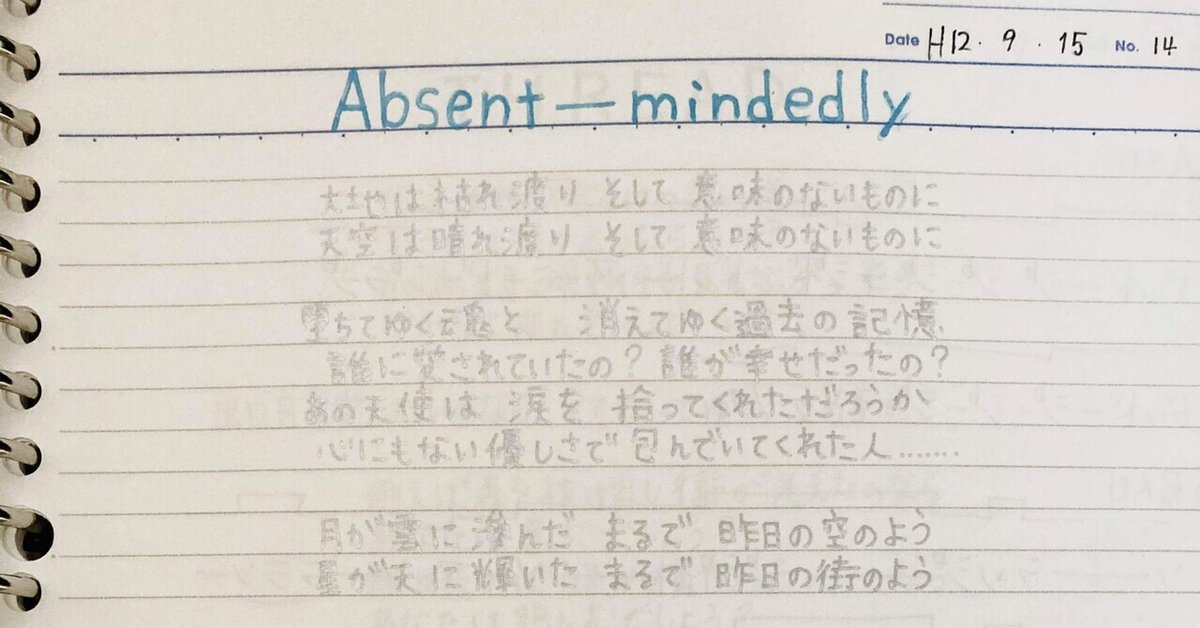 Date H12. 9. 15 No. 14
Absent—mindedly
大地は枯れ渡り そして 意味のないものに
天空は晴れ渡り そして 意味のないものに
堕ちてゆく魂と 消えてゆく過去の記憶
誰に愛されていたの? 誰が幸せだったの?
あの天使は 涙を 拾ってくれただろうか
心にもない優しさで 包んでいてくれた人.......
月が雲に滲んだ まるで 昨日の空のよう
星が天に輝いた まるで 昨日の街のよう